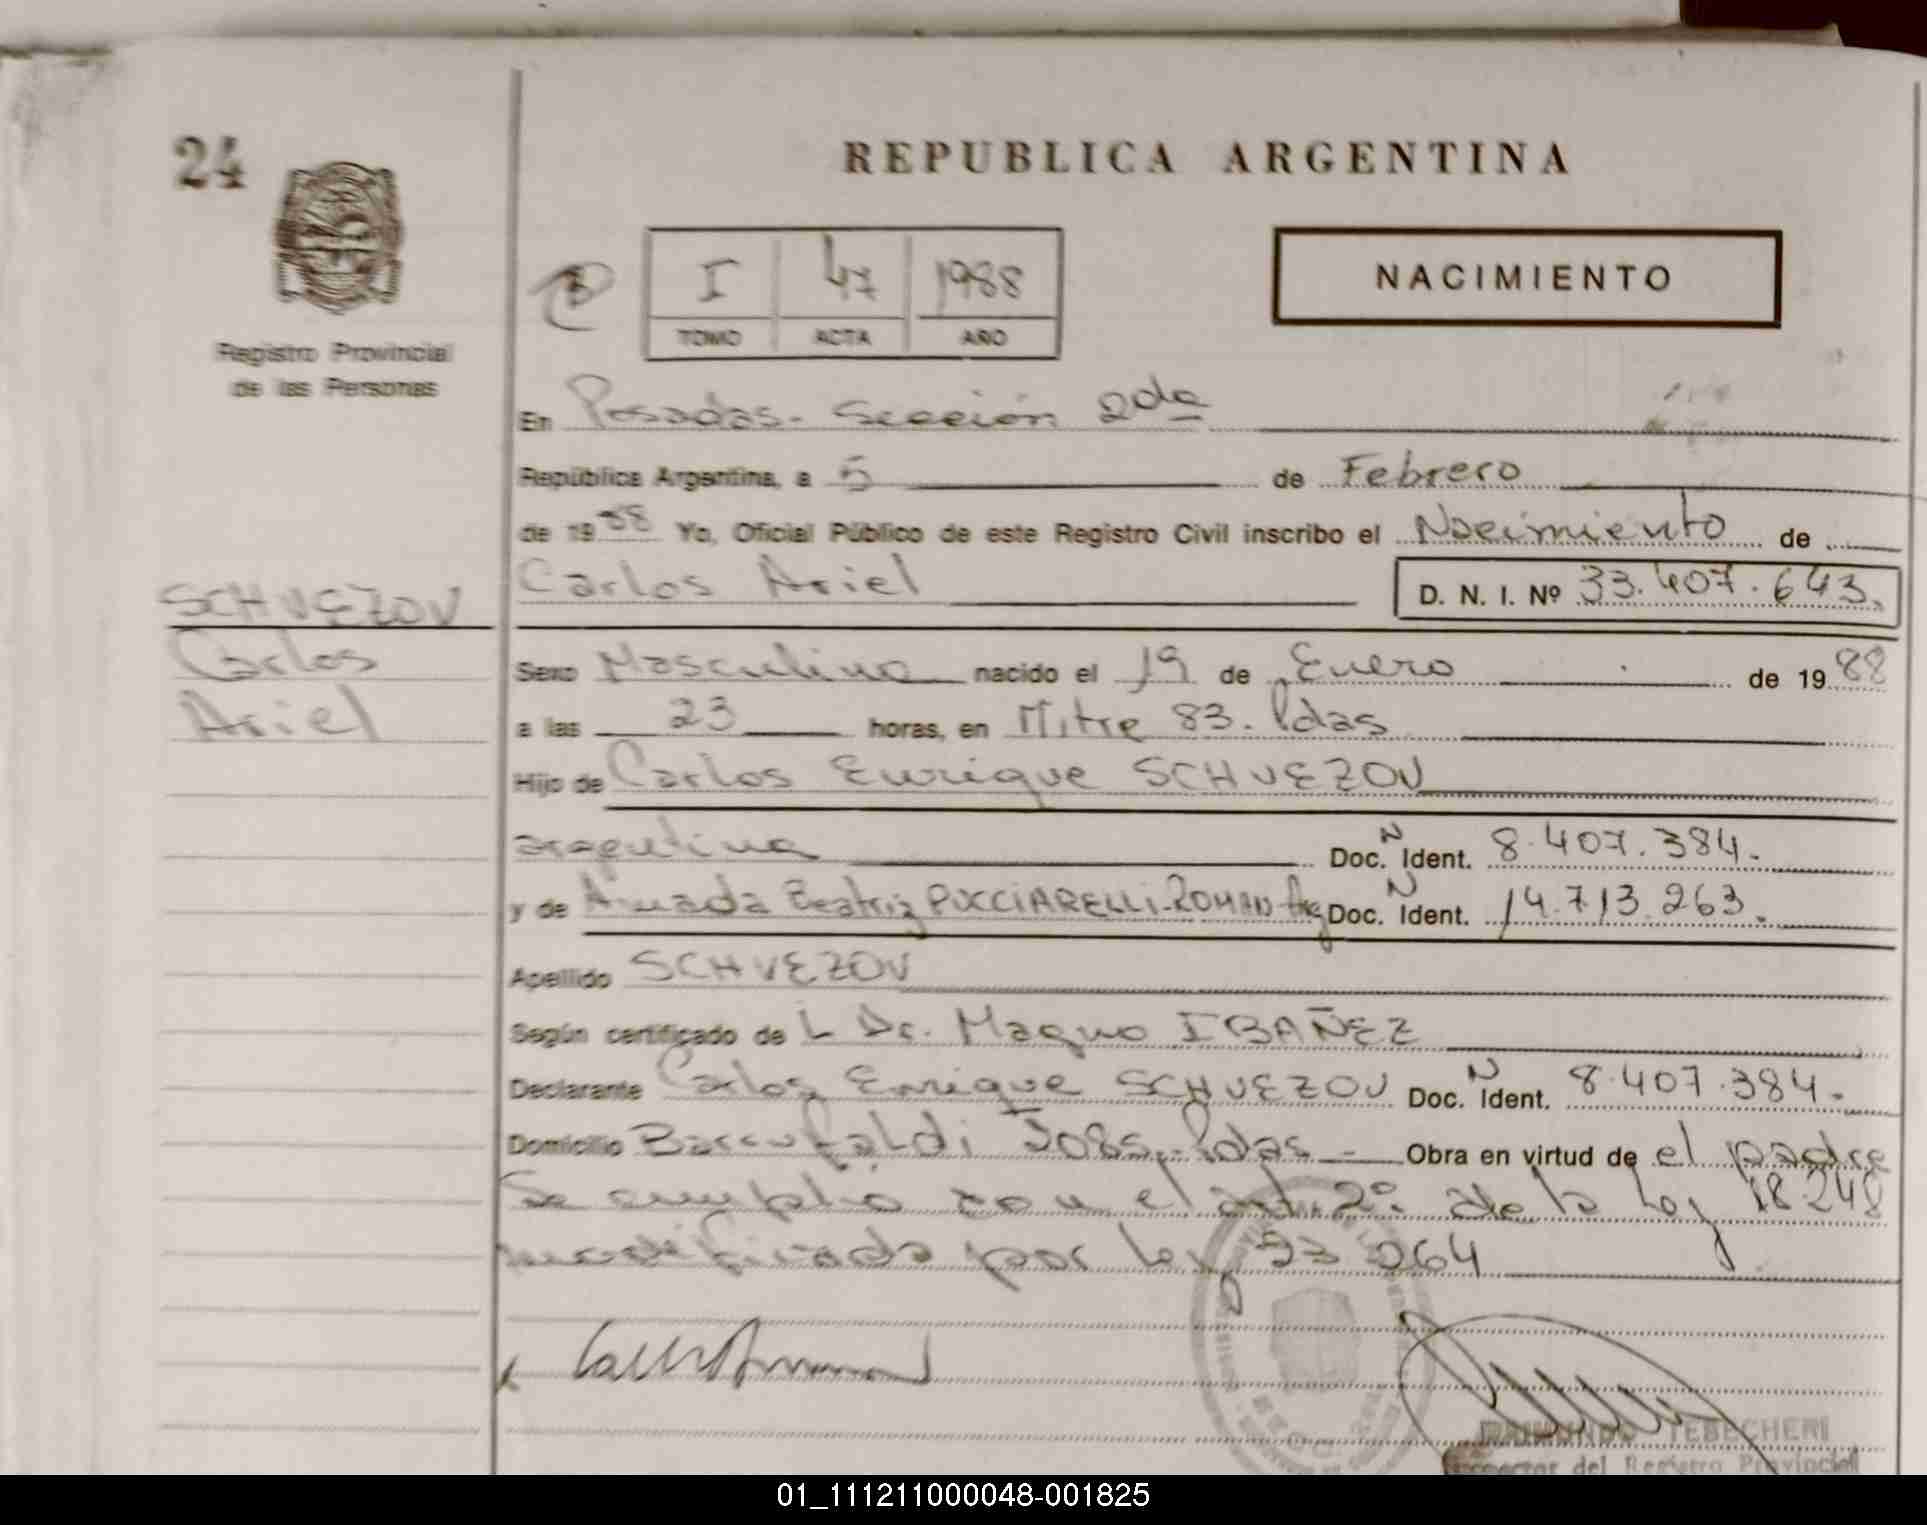 24
REPUBLICA ARGENTINA
I 47 1988
TOMO ACTA AÑO
NACIMIENTO
Registro Provincial
de las Personas
En Posadas - Sección 2da
República Argentina, a 5 de Febrero
de 1988 Yo, Oficial Público de este Registro Civil inscribo el Nacimiento de
Carlos Ariel D. N. I. Nº 33.407.643.
SCHVEZOV
Carlos
Ariel
Sexo Masculino nacido el 19 de Enero de 1988
a las 23 horas, en Mitre 83. Pdas
Hijo de Carlos Enrique SCHVEZOV
argentina Doc. N Ident. 8.407.384.
y de Amada Beatriz PUCCIARELLI-ROMAN Arg Doc. N Ident. 14.713.263.
Apellido SCHVEZOV
Según certificado de L Dr. Magno IBAÑEZ
Declarante Carlos Enrique SCHVEZOV Doc. N Ident. 8.407.384.
Domicilio Pdas - Obra en virtud de el padre
Se cumplió con el art. 2º de la Ley 18.248
modificada por ley 23 264
RAIMUNDO TEBECHERI
del Registro Provincial
01_111211000048-001825